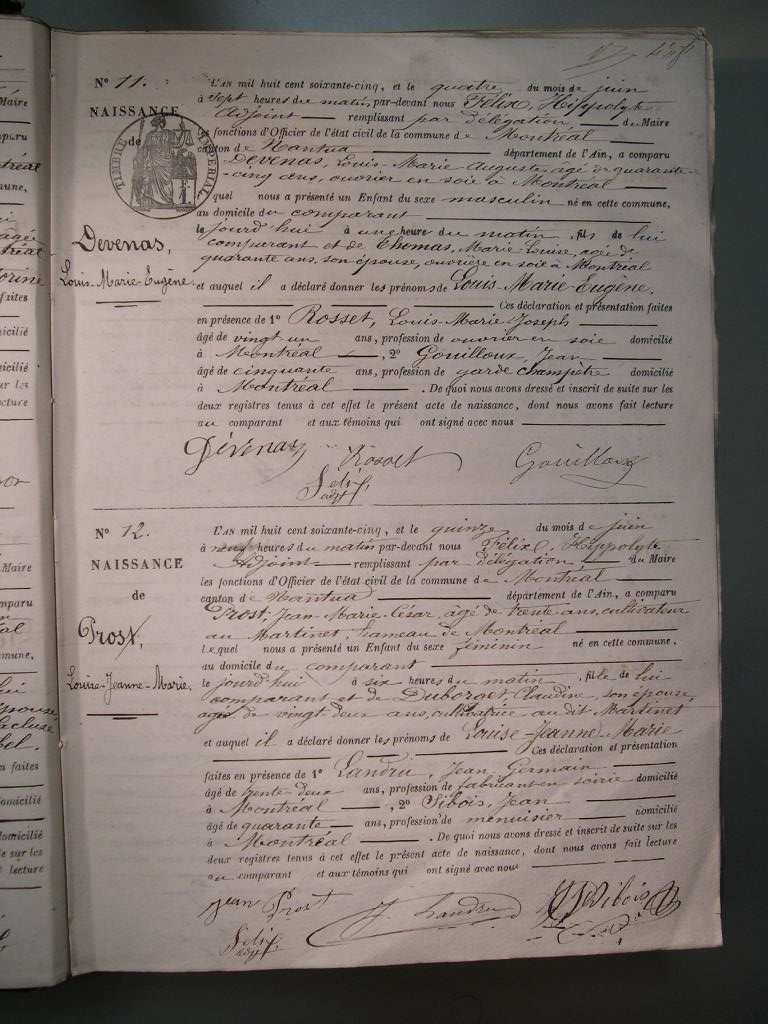 N° 11.
NAISSANCE
de
TIMBRE IMPÉRIAL
Devenas,
Louis-Marie-Eugène.
L'AN mil huit cent soixante-cinq, et le quatre du mois de juin
à sept heures du matin, par-devant nous Félix, Hippolyte
Adjoint remplissant par délégation, du Maire
les fonctions d'Officier de l'état civil de la commune de Montréal
canton de Nantua département de l'Ain, a comparu
Devenas, Louis-Marie Auguste, agé de quarante-
-cinq ans, ouvrier en soie à Montréal
lequel nous a présenté un Enfant du sexe masculin né en cette commune,
au domicile du comparant
le jourd'hui à une heure du matin, fils de lui
comparant et de Thomas, Marie Louise, agée de
quarante ans, son épouse, ouvrière en soie à Montréal
et auquel il a déclaré donner les prénoms de Louis-Marie-Eugène.
Ces déclaration et présentation faites
en présence de 1° Rosset, Louis-Marie Joseph
âgé de vingt un ans, profession de ouvrier en soie domicilié
à Montréal , 2° Gouilloux, Jean
âgé de cinquante ans, profession de garde champêtre domicilié
à Montréal . De quoi nous avons dressé et inscrit de suite sur les
deux registres tenus à cet effet le présent acte de naissance, dont nous avons fait lecture
au comparant et aux témoins qui ont signé avec nous
Dévenas Rosset Gouilloux
Félix,
adjt
N° 12.
NAISSANCE
de
Prost,
Louise-Jeanne-Marie.
L'AN mil huit cent soixante-cinq, et le quinze du mois de juin
à neuf heures du matin par-devant nous Félix, Hippolyte
Adjoint remplissant par délégation, du Maire
les fonctions d'Officier de l'état civil de la commune de Montréal
canton de Nantua département de l'Ain, a comparu
Prost, Jean-Marie-César, agé de trente ans, cultivateur
au Martinet, hameau de Montréal
Lequel nous a présenté un Enfant du sexe féminin né en cette commune.
au domicile du comparant
le jourd'hui à six heures du matin, fille de lui
comparant et de Duborget Claudine, son épouse,
agée de vingt deux ans, cultivatrice au dit Martinet
et auquel il a déclaré donner les prénoms de Louise-Jeanne Marie
Ces déclaration et présentation
faites en présence de 1° Landru, Jean Germain
âgé de trente-deux ans, profession de fabricant en soirie domicilié
à Montréal , 2° Sibois, Jean
âgé de quarante ans, profession de menuisier domicilié
à Montréal . De quoi nous avons dressé et inscrit de suite sur les
deux registres tenus à cet effet le présent acte de naissance, dont nous avons fait lecture
au comparant et aux témoins qui ont signé avec nous
jean Prost J. Landru Sibois
Félix
adjt